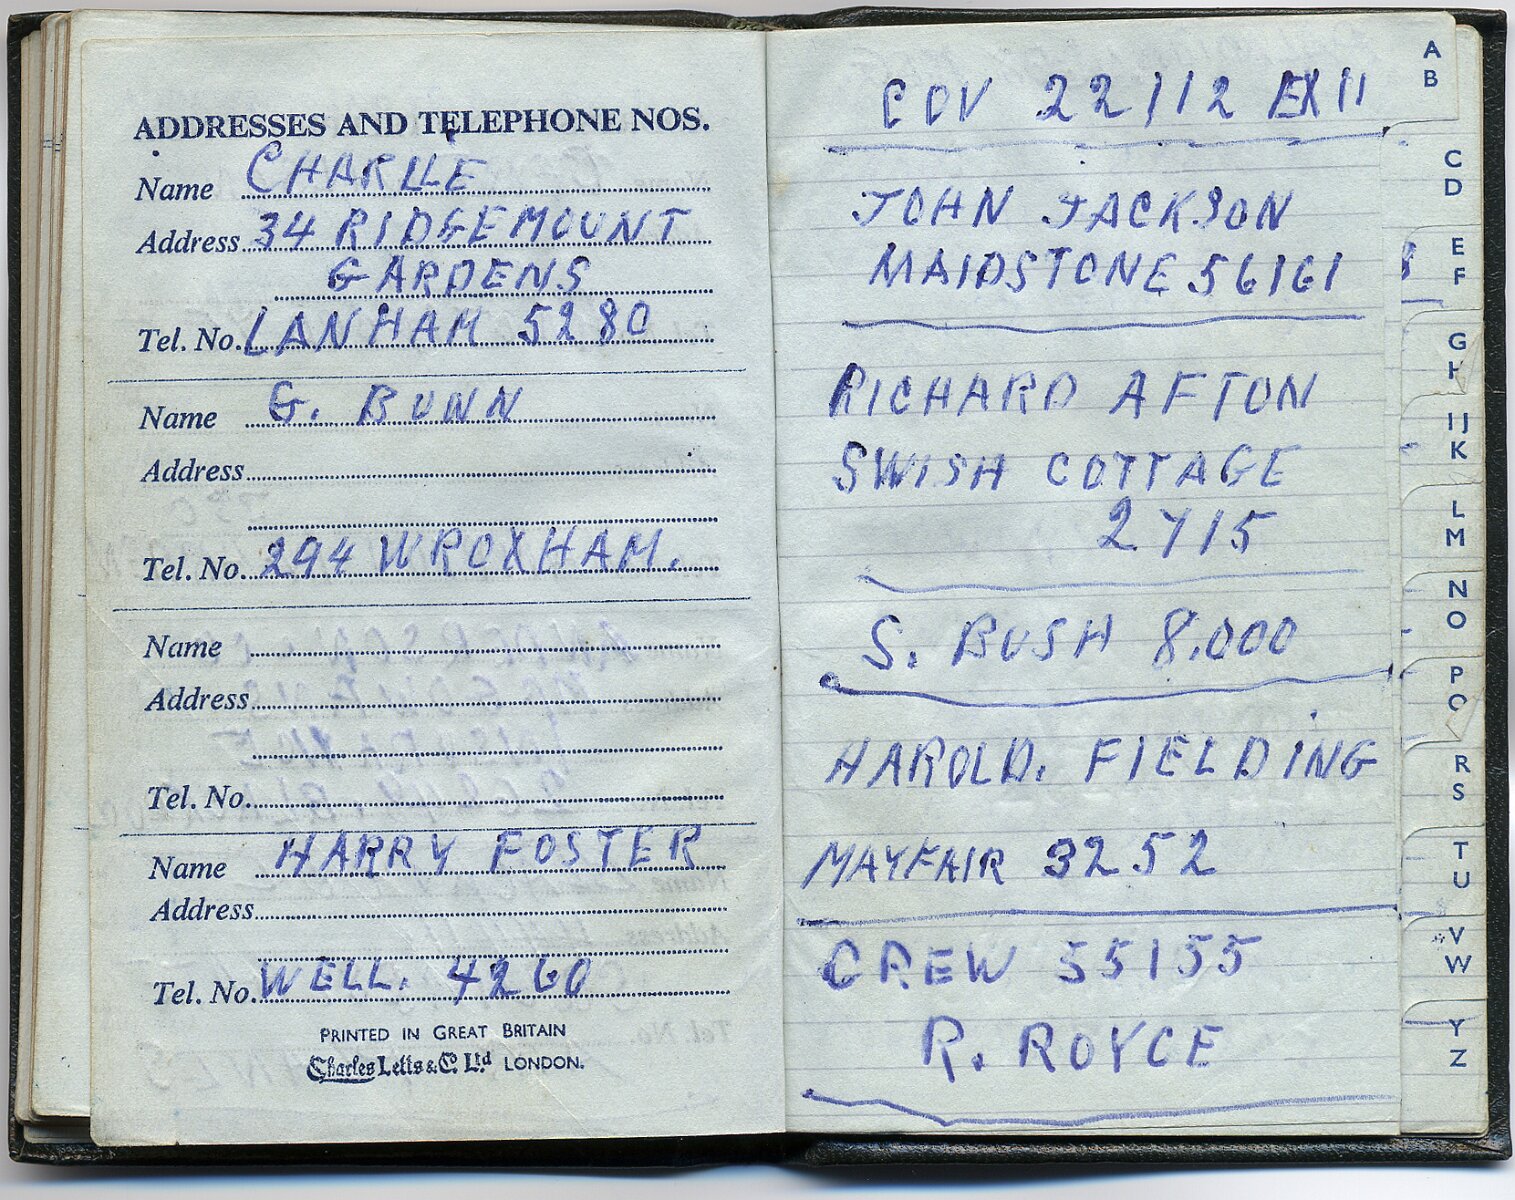 ADDRESSES AND TELEPHONE NOS.
Name CHARLIE
Address 34 RIDGEMOUNT
GARDENS
Tel. No. LANHAM 5280
Name G. BUNN
Address
Tel. No. 294 WROXHAM.
Name
Address
Tel. No.
Name HARRY FOSTER
Address
Tel. No. WELL. 4260
PRINTED IN GREAT BRITAIN
Charles Letts & Co. Ltd LONDON.
COV 22112 EX11
JOHN JACKSON
MAIDSTONE 56161
RICHARD AFTON
SWISH COTTAGE
2715
S. BUSH 8.000
HAROLD. FIELDING
MAYFAIR 3252
CREW 55155
R. ROYCE
A
B
C
D
E
F
G
H
IJ
K
L
M
N
O
P
Q
R
S
T
U
V
W
Y
Z